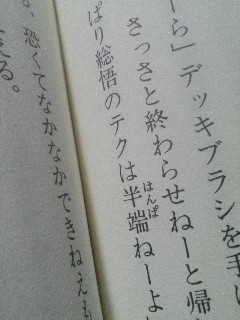 ーら」デッキブラシを手
さっさと終わらせねーと帰
はんぱ
ぱり総悟のテクは半端ねーよ
、恐くてなかなかできねえも
る。